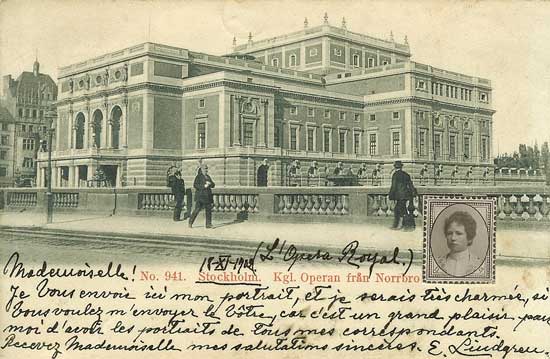 18-XI-1902 (L'Opera Royal.)
No. 941. Stockholm. Kgl. Operan från Norrbro
Mademoiselle!
Je Vous envoie ici mon portrait, et je serais très charmée, si
Vous voulez m'envoyer le Vôtre, car c'est un grand plaisir, pour
moi d'avoir les portraits de tous mes correspondants.
Recevez Mademoiselle mes salutations sincères. E. Lindgren